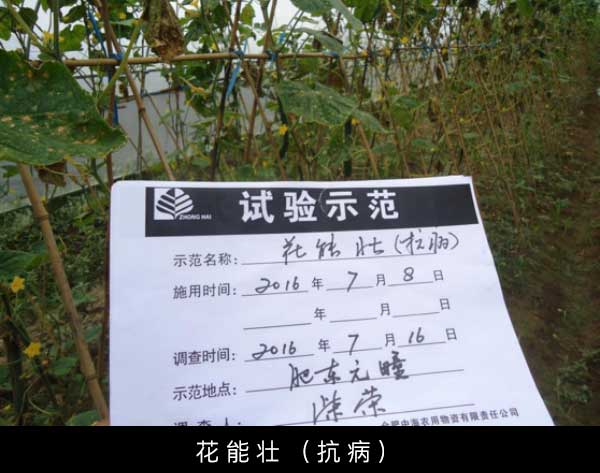 ZHONG HAI
试验示范
示范名称: 花能壮(抗病)
施用时间: 2016 年 7 月 8 日
年 月 日
调查时间: 2016 年 7 月 16 日
示范地点: 肥东元疃
调查人: 荣
合肥中海农用物资有限责任公司
花能壮（抗病）